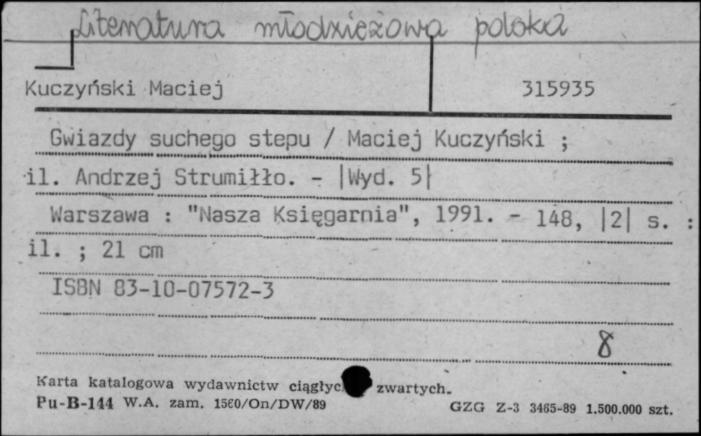 Literatura młodzieżowa polska
Kuczyński Maciej 315935
Gwiazdy suchego stepu / Maciej Kuczyński ;
il. Andrzej Strumiłło. - |Wyd. 5|
Warszawa : "Nasza Księgarnia", 1991. - 148, |2| s. :
il. ; 21 cm
ISBN 83-10-07572-3
8
Karta katalogowa wydawnictw zwartych.
Pu-B-144 W.A. zam. 1560/On/DW/89 GZG Z-3 3465-89 1.500.000 szt.